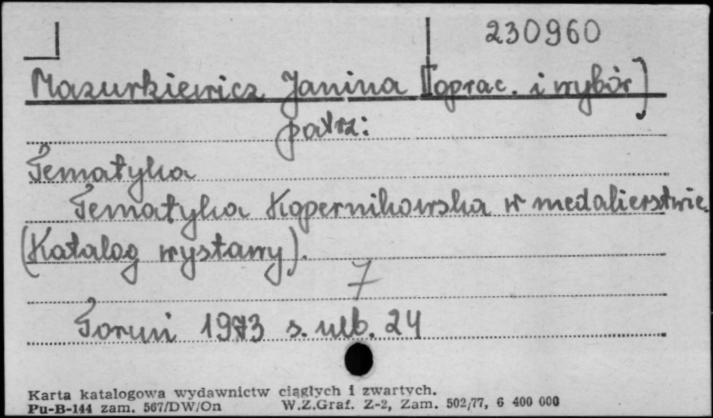 230960
Mazurkiewicz Janina [oprac. i wybór]
patrz:
Tematyka
Tematyka Kopernikowska w medalierstwie.
(Katalog wystawy).
7
Toruń 1973 s. nlb. 24
Karta katalogowa wydawnictw ciągłych i zwartych.
Pu-B-144 zam. 567/DW/On W.Z.Graf. Z-2, Zam. 502/77, 6 400 000